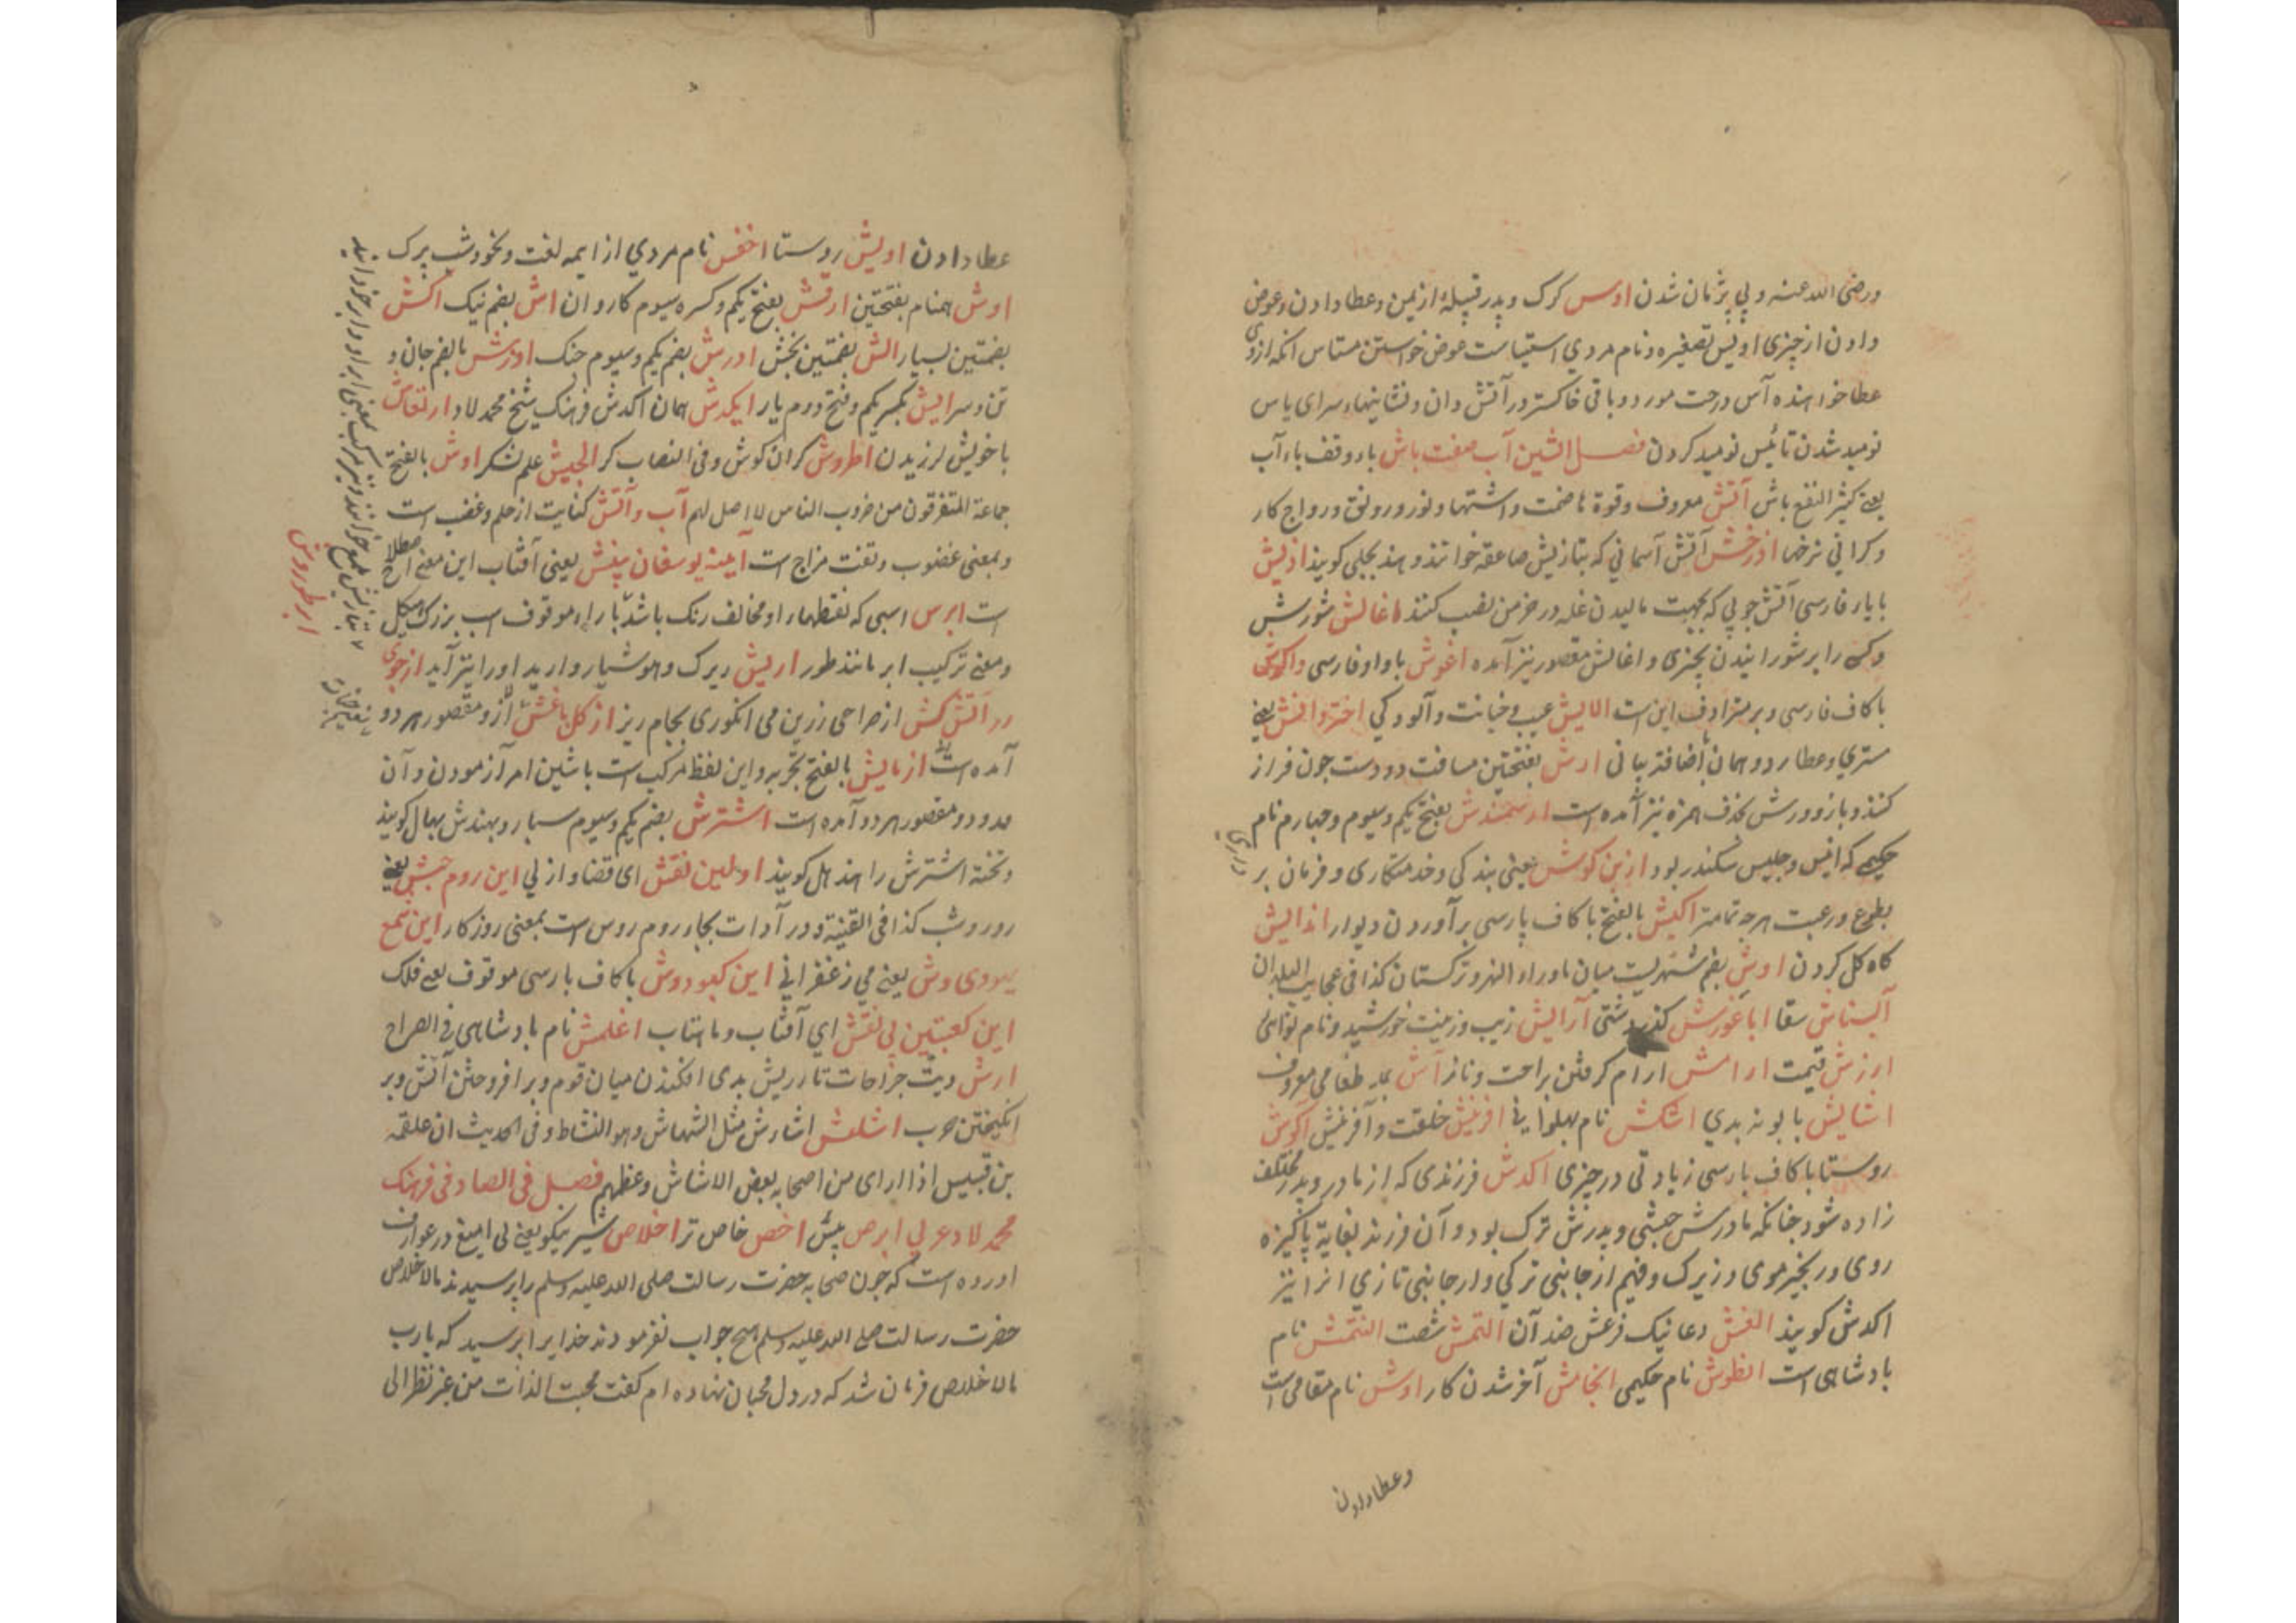 ورضی الله عنه و بی پژمان شدن اوس کرک و پدر قبیله از یمن و عطا دادن و عوض
دادن از چیزی اویس تصغیره و نام مردی استیاست عوض خواستن مستاس انکه ازوی
عطا خواهنده آس درخت مورد و باقی خاکستر در آتش دان و نشانیهاء سرای یاس
نومید شدن تائیس نومید کردن فصل الشین آب صفت باش باء وقف باء آب
یعنے کثیر النفع باش آتش معروف و قوة هاضمت و اشتها و نور و رونق و رواج کار
و کرانی نرخها اذرخش آتش آسمانی که بتازیش صاعقه خوانند و هند بجلی کویند اذیش
با یاء فارسی آتش چوبی که بجهت مالیدن غله در خرمن نصب کنند اغالش شورش
و کسی را بر شورانیدن بچیزی و اغالش مقصور نیز آمده اغوش با واو فارسی واکوش
با کاف فارسی و بر مترادف این است الایش عیب و خیانت و آلودکی اختر دانش یعنے
مشتری و عطارد و همان باضافة بیانی ارش بفتحتین مسافت دو دست چون فراز
کنند و بازو ورش بحذف همزه نیز آمده است ارشمندش بفتح یکم و سیوم و چهارم نام
حکیمی که انیس و جلیس سکندر بود ازبن کوش یعنی بندکی و خدمتکاری و فرمان بر
بطوع و رغبت هرچه تمامتر اکیش بالفتح با کاف پارسی برآوردن دیوار اندایش
کاه کل کردن اوش بضم شهریست میان ماوراء النهر و ترکستان کذا فی عجایب البلدان
آبستاش سقا اباغورش کذر دشتی آرایش زیب و زینت خورشید و نام نوائی
ارزش قیمت ارامش ارام کرفتن براحت و ناز آش بمد طعامی معروف
اشایش بابونه بدی اشکش نام پهلوانی افرنیش خلقت و آفرینش اکوش
روستا با کاف پارسی زیادتی در چیزی اکدش فرزندی که از مادر و پدر مختلف
زاده شود چنانکه مادرش حبشی و پدرش ترک بود و آن فرزند بغایة پاکیزه
روی و زنجیر موی و زیرک و فهیم از جانبی ترکی و از جانبی تازی انرا نیز
اکدش کویند الغش دعا نیک فرغش ضد آن التمش شصت التتمش نام
بادشاهی است انطوش نام حکیمی انجامش آخر شدن کار اوش نام مقامی است
وعطا دادن
عطا دادن اویش روستا اخفش نام مردی از ایمه لغت و نحو و شب پرک
اوش همنام بفتحتین ارقش بفتح یکم و کسره سیوم کاروان اش بضم نیک اکش
بضمتین بسیار الش بضمتین بخش ادرش بضم یکم و سیوم جنک اوزش بالضم جان و
تن و سر ایش بکسر یکم و فتح دوم یار ایکدش همان اکدش فرهنک شیخ محمد لاد ارتعاش
با خویش لرزیدن اطروش کران کوش و فی النصاب کر الجیش علم لشکر اوش بالفتح
جماعة المتفرقون من ضروب الناس لا اصل لهم آب و آتش کنایت از حلم و غضب است
و بمعنی غضوب و تفت مزاج است آیینه یوسفان پنفش یعنی آفتاب این معنے اصطلاح
است ابرس اسپی که نقطهاء او مخالف رنک باشد با راء موقوف اسب بزرک هیکل
و معنے ترکیب ابر مانند طور اریش زیرک و هوشیار و ارید او را نیز آید از جوی
زر آتش کش از صراحی زرین می انکوری بجام ریز از کل باغش از و مقصور هر دو
آمده است ازمایش بالفتح تجربه و این لفظ مرکب است با شین امر آزمودن و آن
ممدود و مقصور هر دو آمده است اشترش بضم یکم و سیوم سیار و بهندش بهال کویند
و تخته اشترش را هند هل کویند اولین نقش ای قضاء ازلی این روم حبش یعنے
روز و شب کذا فی القنیة و در آدات بجاء روم روس است بمعنی روزکار این شمع
یهودی وش یعنے می زعفرانی این کبود وش با کاف پارسی موقوف یعنے فلک
این کعبتین بی نقش ای آفتاب و ماهتاب اغلمش نام بادشاهی فی الصراح
ارش دیت جراحات تارریش بدی افکندن میان قوم و بر افروختن آتش و بر
انکیختن حرب اشاش اشاوش مثل الهشاش و هو النشاط و فی الحدیث ان علقمة
بن قیس اذا رای من اصحابه بعض الاشاش وعظهم فصل فی الصاد فی فرهنک
محمد لاد عربی ابرص پیش اخص خاص تر اخلاص شیر نیکو یعنے بی امیغ در عوارف
اورده است که چون صحابه حضرت رسالت صلی الله علیه وسلم را پرسیدند ما الاخلاص
حضرت رسالت صلی الله علیه وسلم هیچ جواب نفرمودند خدایرا پرسید که یارب
ما الاخلاص فرمان شد که در دل محبان نهاده ام کفت محبت الذات من غیر نظر الی
ابرطروش